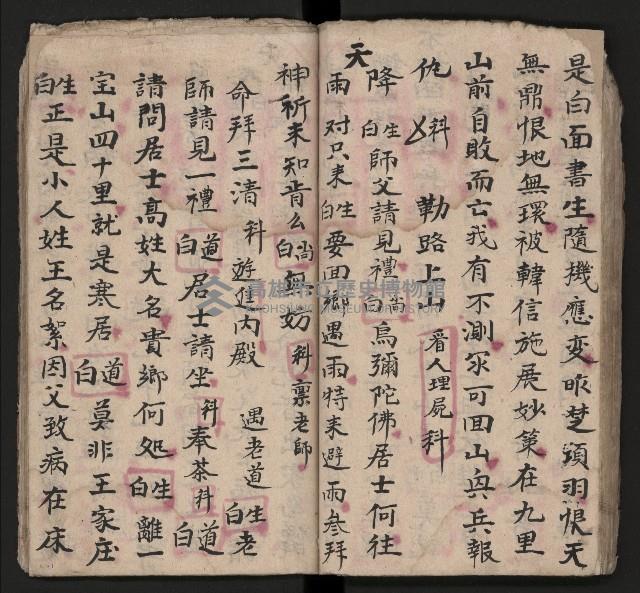 是白面書生隨機應变昨楚項羽恨天
無鼎恨地無環被韓信施展妙策在九里
山前自敗而亡我有不測尔可回山與兵報
仇 科 勒路上山 番人理屍科
天
降 白生 師父請見禮 白尚 烏彌陀佛居士何往
雨 对只来 白生 要回鄉遇雨特来避雨叄拜
神祈未知肯么 白尚 無妨 科 禀老師
命拜三清 科 遊進內殿 遇老道 白生 老
師請見一禮 白道 居士請坐 科 奉茶 科 白道
請問居士高姓大名貴鄉何処 白生 離一
宝山四十里就是寒居 白道 莫非王家庄
白生 正是小人姓王名絮因父致病在床
高雄市立歷史博物館
KAOHSIUNG MUSEUM OF HISTORY